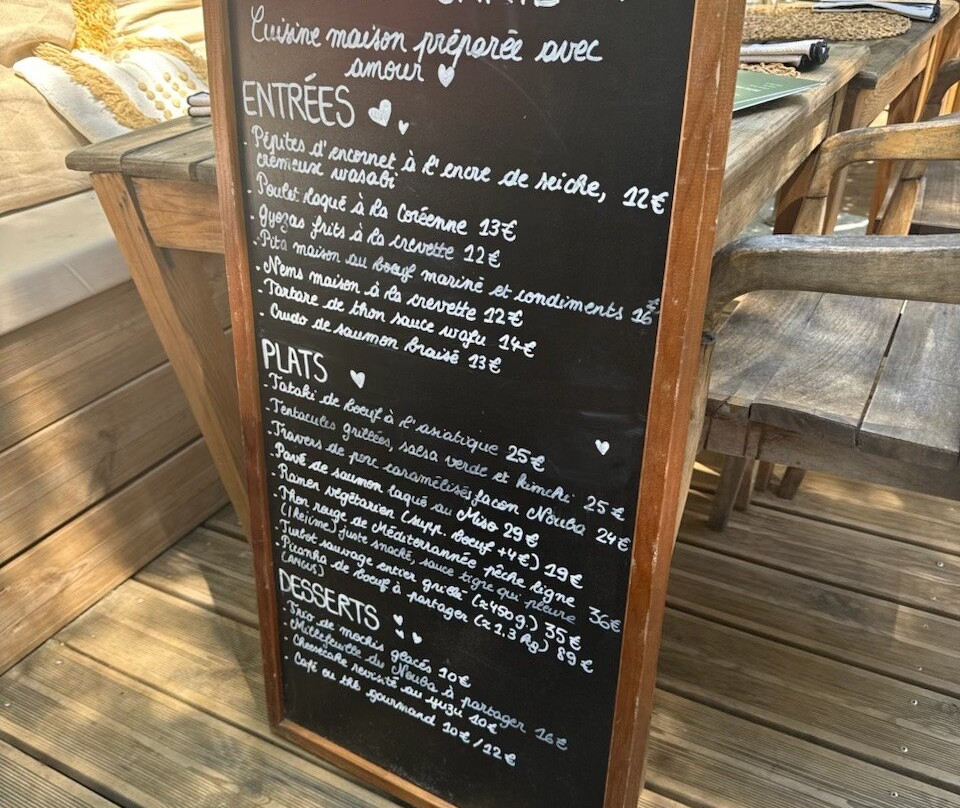 Cuisine maison préparée avec
amour
ENTRÉES
- Pépites d'encornet à l'encre de seiche, 12€
crémeux wasabi
- Poulet laqué à la Coréenne 13€
- Gyozas frits à la crevette 12€
- Pita maison au boeuf mariné et condiments 16€
- Nems maison à la crevette 12€
- Tartare de thon sauce wafu 14€
- Crudo de saumon braisé 13€
PLATS
- Tataki de boeuf à l'asiatique 25€
- Tentacules grillées, salsa verde et kimchi 25€
- Travers de porc caramélisés façon Nouba 24€
- Pavé de saumon laqué au Miso 29€
- Ramen végétarien (supp. boeuf +4€) 19€
- Thon rouge de Méditerrannée pêche ligne
juste snacké, sauce tigre qui pleure 36€
- Turbot sauvage entier grillé (≈450g.) 35€
- Piranha de boeuf à partager (≈1.3 kg) 89€
(ANGUS)
DESSERTS
- Trio de mochis glacés 10€
- Millefeuille du Nouba à partager 16€
- Cheesecake revisité au yuzu 10€
- Café ou thé gourmand 10€/12€